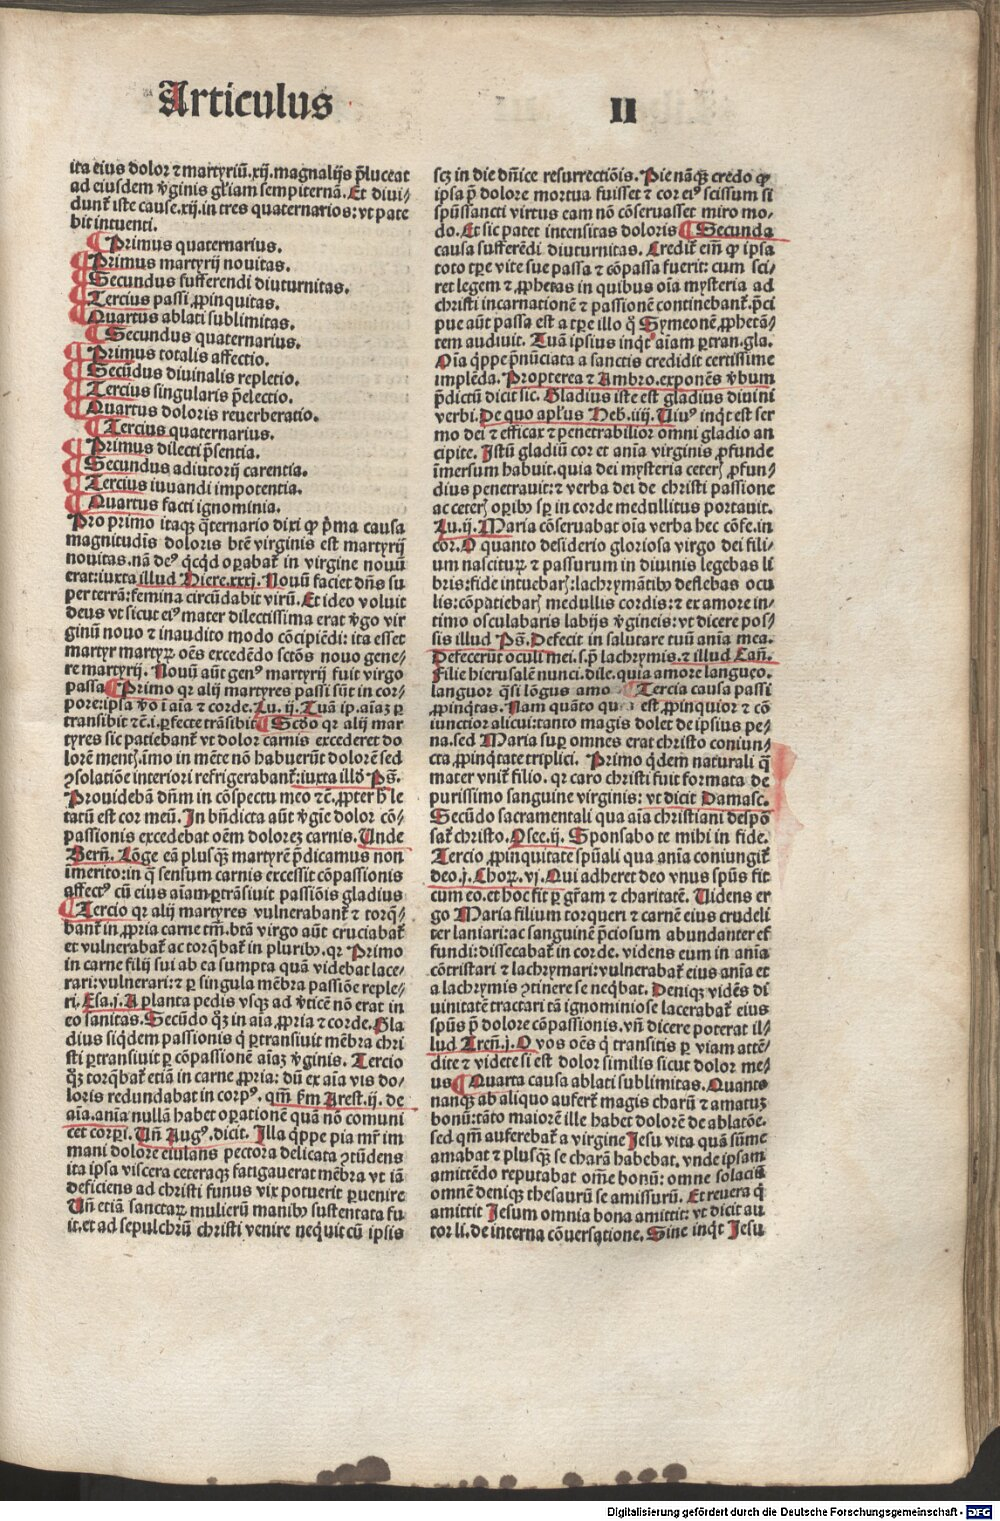 Articulus II
ita eius dolor ⁊ martyriū.xij.magnalijs p̄luceat
ad eiusdem v̓ginis gl̓iam sempiternā. Et diui⸗
dunt̄ iste cause.xij.in tres quaternarios: vt pate
bit intuenti.
¶ Primus quaternarius.
¶ Primus martyrij nouitas.
¶ Secundus sufferendi diuturnitas.
¶ Tercius passi ꝓpinquitas.
¶ Quartus ablati sublimitas.
¶ Secundus quaternarius.
¶ Primus totalis affectio.
¶ Secūdus diuinalis repletio.
¶ Tercius singularis p̄electio.
¶ Quartus doloris reuerberatio.
¶ Tercius quaternarius.
¶ Primus dilecti p̄sentia.
¶ Secundus adiutorij carentia.
¶ Tercius iuuandi impotentia.
¶ Quartus facti ignominia.
Pro primo itaqꝫ q̄ternario dixi ꝙ p̓ma causa
magnitudīs doloris btē virginis est martyrij
nouitas.nā deꝰ qͥcqͥd oꝑabat̄ in virgine nouū
erat:iuxta illud Hiere.xxxj. Nouū faciet dn̄s su
per terrā:femina circūdabit virū. Et ideo voluit
deus vt sicut eiꝰ mater dilectissima erat v̓go vir
ginū nouo ⁊ inaudito modo cōcipiēdi: ita esset
martyr martyrꝝ oēs excedēdo sctōs nouo gene⸗
re martyrij. Nouū aūt genꝰ martyrij fuit virgo
passa ¶ Primo qr alij martyres passi sūt in cor⸗
pore:ipsa v̓o ī aīa ⁊ corde. Lu.ij. Tuā ip.aīaꝫ ꝑ
transibit ⁊c̄.i.ꝑfecte trāsibit ¶ Scd̓o qr alij mar
tyres sic patiebant̄ vt dolor carnis excederet do
lorē mentꝭ.īmo in mēte nō habuerūt dolorē sed
ꝯsolatiōe interiori refrigerabant̄:iuxta illd̓ Ps̄.
Prouidebā dn̄m in cōspectu meo ⁊c̄.ꝓpter h̓ le
tatū est cor meū. In bn̄dicta aūt v̓gīe dolor cō⸗
passionis excedebat oēm dolorēꝫ carnis. Unde
Bern̄. Lōge eā plusqͣꝫ martyrē p̄dicamus non
imerito:in qͣ sensum carnis excessit cōpassionis
affectꝰ cū eius aīam ꝑtrāsiuit passiōis gladius
¶ Tercio qr alij martyres vulnerabant̄ ⁊ torq̄⸗
bant̄ in ꝓpria carne tm̄.btā virgo aūt cruciabat̄
et vulnerabat̄ ac torqͣbat̄ in pluribꝰ.qr Primo
in carne filij sui ab ea sumpta quā videbat lace⸗
rari:vulnerari:⁊ ꝑ singula mēbra passiōe reple⸗
ri. Esa.j. A planta pedis vsqꝫ ad v̓ticē nō erat in
eo sanitas. Secūdo qͦꝫ in aīa ꝓpria ⁊ corde. Gla
dius siqͥdem passionis qͥ ꝑtransiuit mēbra chri
sti ꝑtransiuit ꝑ cōpassionē aīaꝫ v̓ginis. Tercio
qͦꝫ torqͣbat̄ etiā in carne ꝓpria: dū ex aīa vis do⸗
loris redundabat in corpꝰ. qm̄ ẜm Arest.ij. de
aīa.anīa nullā habet oꝑationē quā nō comuni
cet corpi. Un̄ Augꝰ.dicit. Illa qͥppe pia mr̄ im
mani dolore eiulans pectora delicata ꝯtūdens
ita ipsa viscera ceteraqꝫ fatigauerat mēbra vt iā
deficiens ad christi funus vix potuerit ꝑuenire
Un̄ etiā sanctaꝝ mulierū manibꝰ sustentata fu
it.et ad sepulchrū christi venire neqͥuit cū ipsis
scꝫ in die dn̄ice resurrectiōis. Pie nāqꝫ credo ꝙ
ipsa p̄ dolore mortua fuisset ⁊ cor eiꝰ scissum si
spūssancti virtus eam nō cōseruasset miro mo⸗
do. Et sic patet intensitas doloris ¶ Secunda
causa sufferēdi diuturnitas. Credit̄ em̄ ꝙ ipsa
toto tꝑe vite sue passa ⁊ cōpassa fuerit: cum sci⸗
ret legem ⁊ ꝓphetas in quibus oīa mysteria ad
christi incarnationē ⁊ passionē continebant̄.p̄ci
pue aūt passa est a tꝑe illo qͦ Symeonē ꝓphetā⸗
tem audiuit. Tuā ipsius inqͥt aīam ꝑtran.gla.
Oīa qͥppe p̄nūciata a sanctis credidit certissime
implēda. Propterea ⁊ Ambro.exponēs v̓bum
p̄dictū dicit sic. Gladius iste est gladius diuini
verbi. De quo apl̓us Heb.iiij. Uiuꝰ inqͥt est ser
mo dei ⁊ efficax ⁊ penetrabilior omni gladio an
cipite. Istū gladiū cor et anīa virginis ꝓfunde
īmersum habuit.quia dei mysteria ceterꝭ ꝓfun⸗
dius penetrauit:⁊ verba dei de christi passione
ac ceterꝭ oꝑibꝰ sꝑ in corde medullitus portauit.
Lu.ij. Maria cōseruabat oīa verba hec cōfe.in
cor. O quanto desiderio gloriosa virgo dei fili⸗
um nasciturꝝ ⁊ passurum in diuinis legebas li
bris:fide intuebarꝭ:lachrymātibꝰ deflebas ocu
lis:cōpatiebarꝭ medullis cordis:⁊ ex amore in⸗
timo osculabaris labijs v̓gineis: vt dicere pos⸗
sis illud Ps̄. Defecit in salutare tuū anīa mea.
Defecerūt oculi mei.s.p̄ lachrymis.⁊ illud Can̄.
Filie hierusalē nunci.dile.quia amore langueo.
languor qͣsi lōgus amo ¶ Tercia causa passi
ꝓpinqͥtas. Nam quāto qu est ꝓpinquior ⁊ cō
iunctior alicui:tanto magis dolet de ipsius pe⸗
na.sed Maria suꝑ omnes erat christo coniun⸗
cta ꝓpinqͥtate triplici. Primo qͥdem naturali qͣ
mater vnit̄ filio. qr caro christi fuit formata de
purissimo sanguine virginis: vt dicit Damasc.
Secūdo sacramentali qua aīa christiani despō
sat̄ christo. Osee.ij. Sponsabo te mihi in fide.
Tercio ꝓpinquitate spūali qua anīa coniungit̄
deo.j.Choꝝ.vj. Qui adheret deo vnus spūs fit
cum eo.et hoc fit ꝑ gr̄am ⁊ charitatē. Uidens er
go Maria filium torqueri ⁊ carnē eius crudeli
ter laniari:ac sanguinē p̄ciosum abundanter ef
fundi:dissecabat̄ in corde. videns eum in anīa
cōtristari ⁊ lachrymari:vulnerabat̄ eius anīa et
a lachrymis ꝯtinere se neqͥbat. Deniqꝫ vidēs di
uinitatē tractari tā ignominiose lacerabat̄ eius
spūs p̄ dolore cōpassionis.vn̄ dicere poterat il⸗
lud Tren̄.j. O vos oēs qͥ transitis ꝑ viam attē⸗
dite ⁊ videte si est dolor similis sicut dolor me⸗
us ¶ Quarta causa ablati sublimitas. Quanto
nanqꝫ ab aliquo aufert̄ magis charū ⁊ amatuꝫ
bonū:tāto maiorē ille habet dolorē de ablatōe.
sed qm̄ auferebat̄ a virgine Jesu vita quā sūme
amabat ⁊ plusqͣꝫ se charā habebat. vnde ipsam
amittēdo reputabat om̄e bonū: omne solaciū
omnē deniqꝫ thesaurū se amissurū. Et reuera qͥ
amittit Jesum omnia bona amittit: vt dicit au
tor li.de interna cōuersatione. Sine inqͥt Jesu
Digitalisierung gefördert durch die Deutsche Forschungsgemeinschaft - DFG